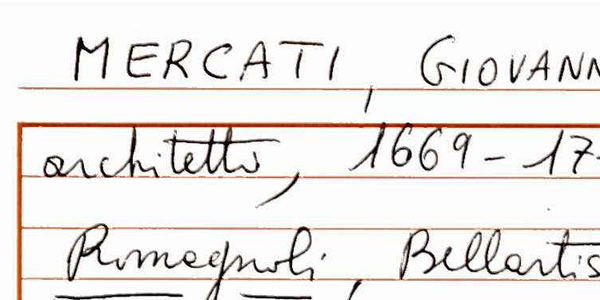 MERCATI, GIOVANN
architetto, 1669-17
Romagnoli, Bellartis